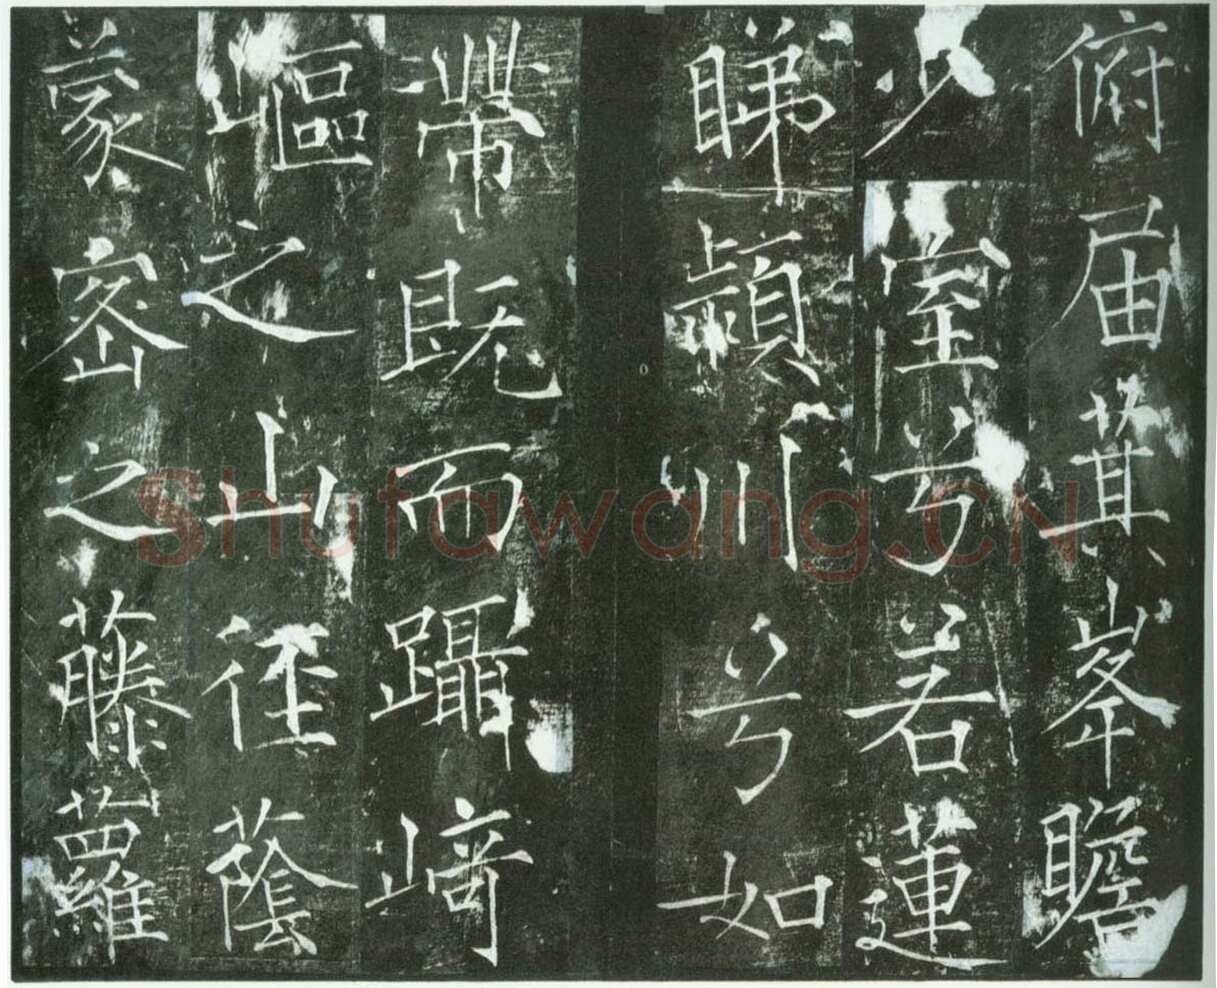 俯届箕峯瞻
少室兮若蓮
睇潁川兮如
帶既而躡崎
嶇之山徑蔭
蒙密之藤蘿
Shufawang.CN